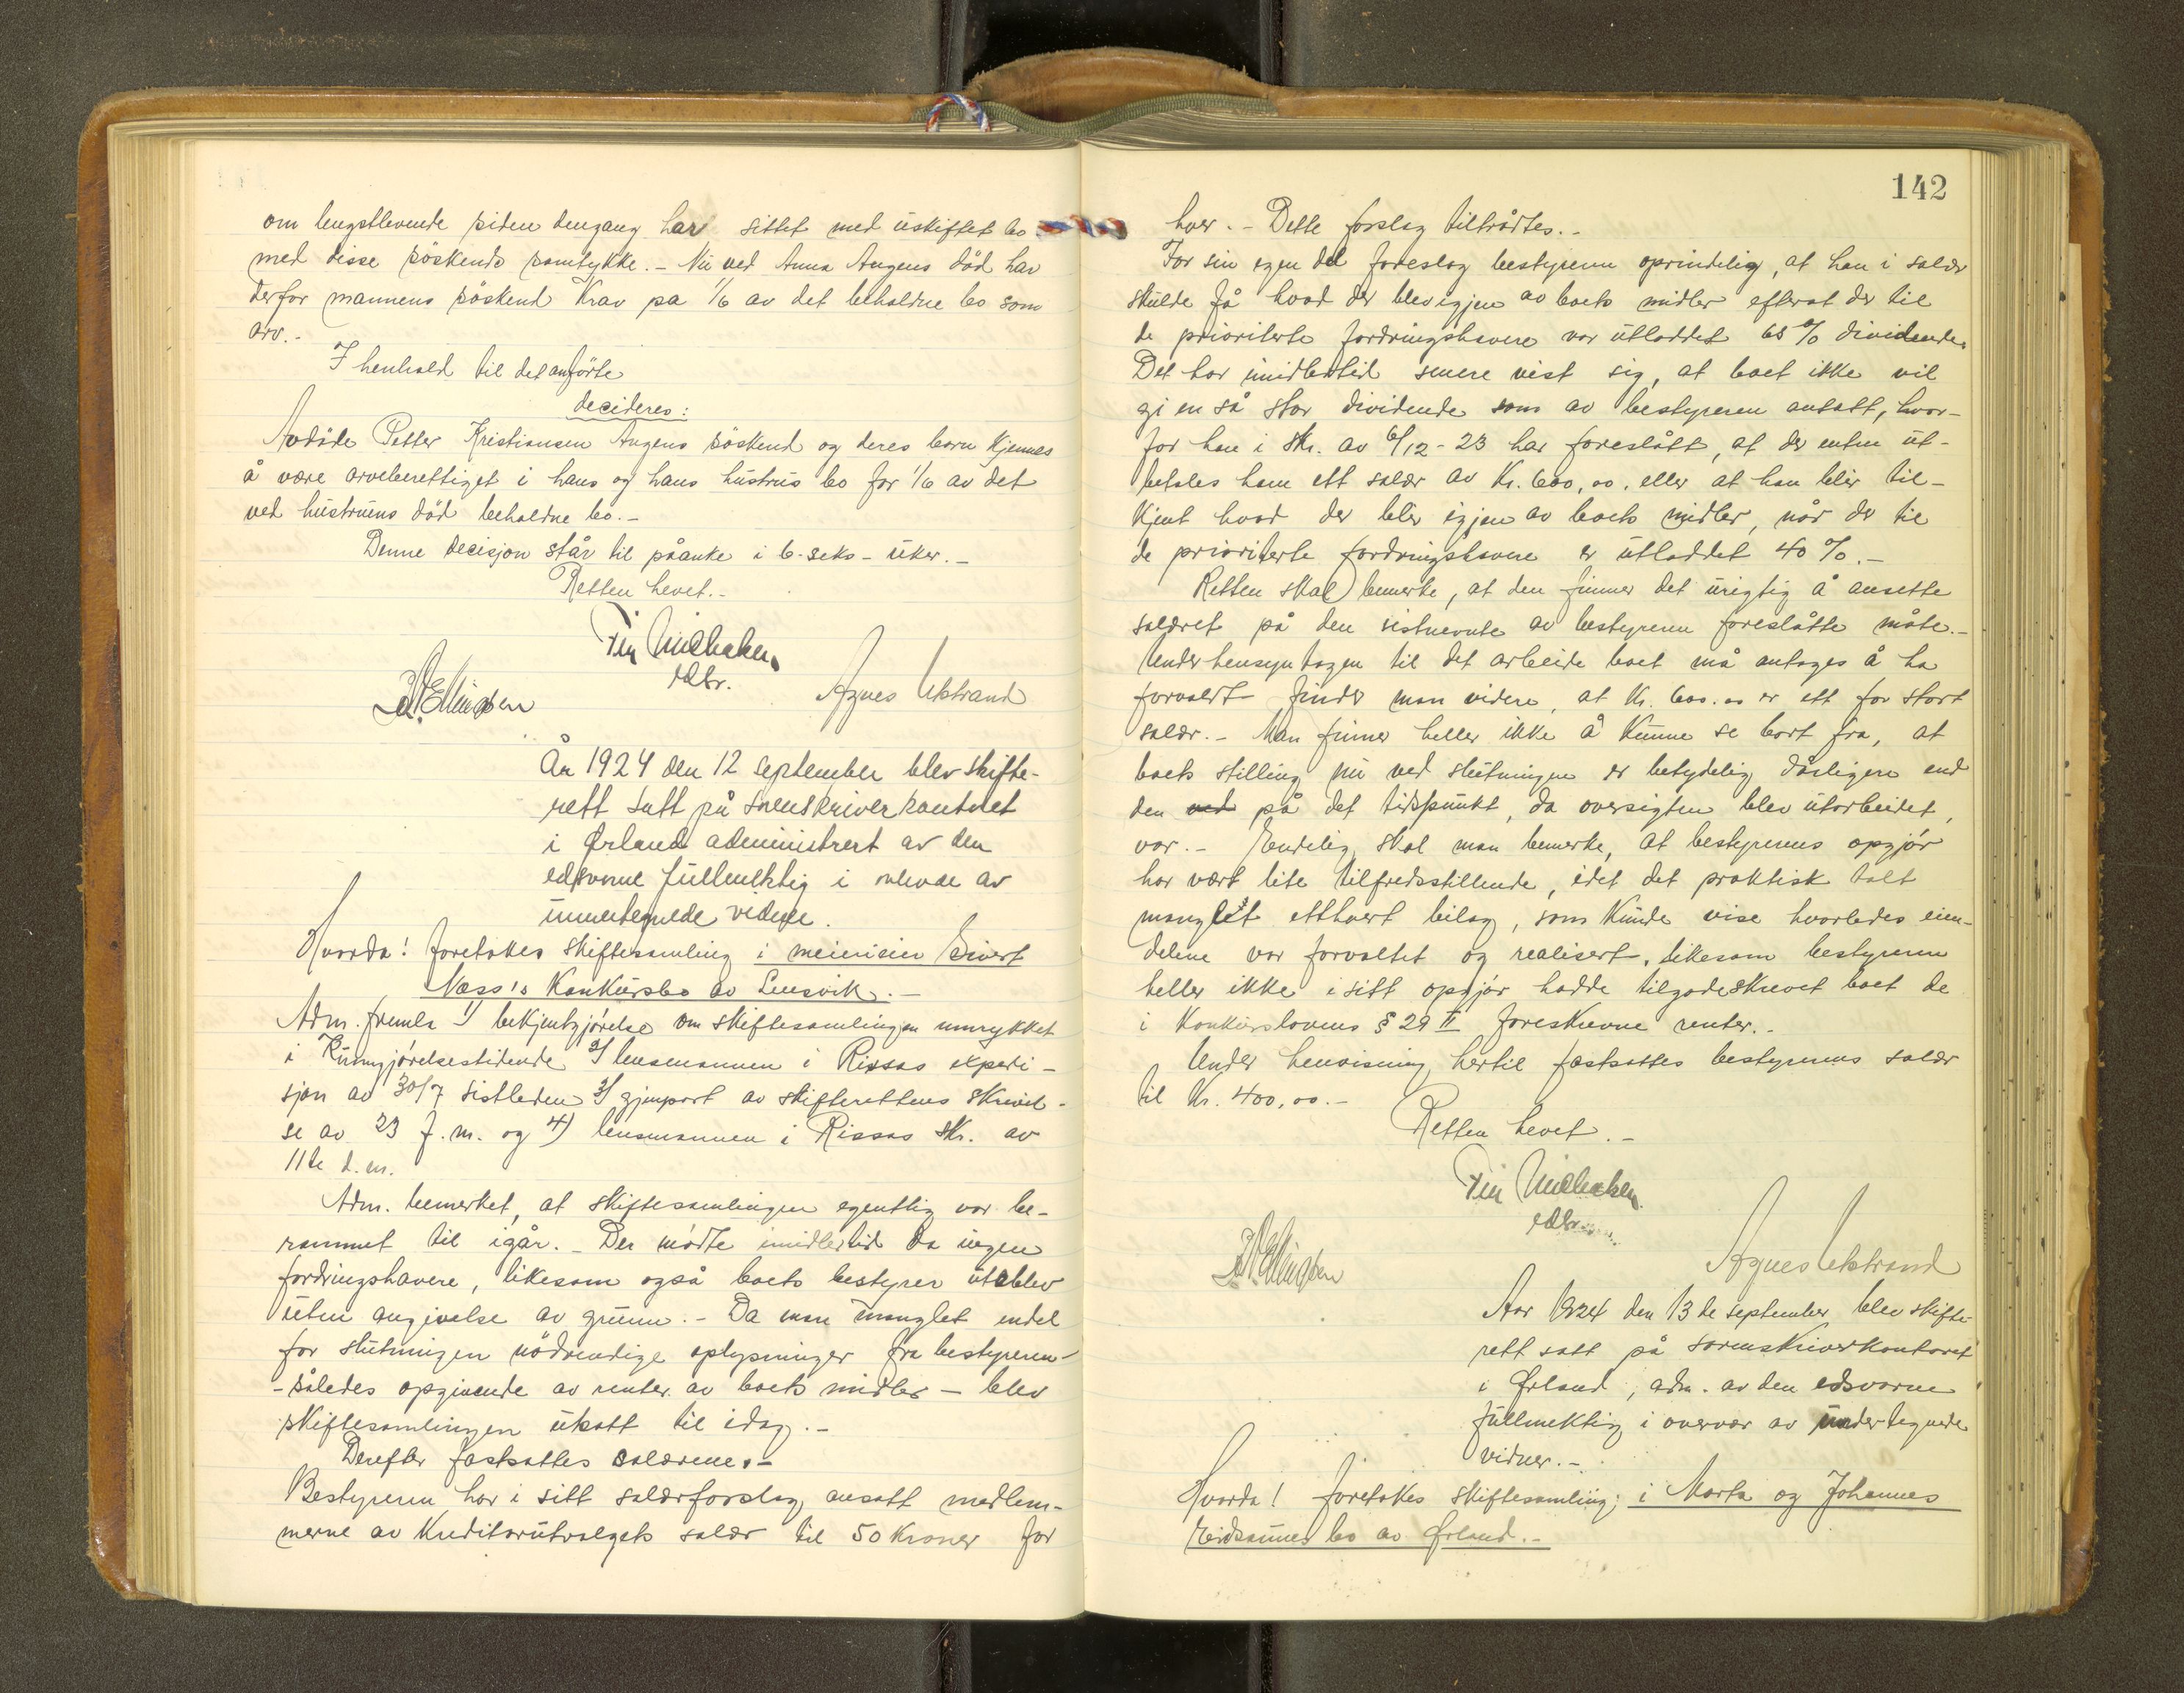 om lengstlevende siden dengang har sittet med uskiftet bo
med disse söskends samtykke. - Nu ved Anna Augens död har
derfor mannens söskend Krav på 1/6 av det beholdne bo som
arv. -
I henhold til det anförte
decideres:
Avdöde Petter Kristiansen Augens söskend og deres barn kjennes
å være arveberettiget i hans og hans hustrus bo for 1/6 av det
ved hustruens död beholdne bo. -
Denne decisjon står til påanke i 6 - seks - uker. -
Retten hevet. -
edsv.
Ellingsen
Agnes Ukstrand
År 1924 den 12 september blev skifte-
rett satt på sorenskriverkontoret
i Ørland administrert av den
edsvorne fullmektig i overvær av
undertegnede vidner.
Hvorda! foretokes skiftesamling i meierieier Sivert
Næss's Konkursbo av Lensvik. -
Adm. fremla 1) bekjentgjørelse om skiftesamlingen innrykket
i Kunngjørelsestidende 2) lensmannen i Rissas expedi-
sjon av 30/7 sistleden 3) gjenpart av skifterettens skrivel-
se av 23 f.m. og 4) lensmannen i Rissas skr. av
11te d.m.
Adm. bemerket, at skiftesamlingen egentlig var be-
rammet til igår. - Der mødte imidlertid da ingen
fordringshavere, likesom også boets bestyrer uteblev
uten angivelse av grunn. - Da man manglet endel
for slutningen nödvendige oplysninger fra bestyreren -
- således opgivende av renter av boets midler - blev
skiftesamlingen utsatt til idag. -
Derefter fastsattes salærene. -
Bestyreren har i sitt salærforslag ansatt medlem-
merne av Kreditorutvalgets salær til 50 Kroner for
142
hver. - Dette forslag tiltrådtes. -
For sin egen del foreslog bestyreren oprindelig, at han i salær
skulde få hvad der blev igjen av boets midler efterat der til
de prioriterte fordringshavere var utloddet 65 % dividende.
Det har imidlertid senere vist sig, at boet ikke vil
gi en så stor dividende som av bestyreren antatt, hvor-
for han i skr. av 6/12 - 23 har foreslått, at der enten ut-
betales ham ett salær av Kr. 600,00. eller at han blir til-
kjent hvad der blir igjen av boets midler, når der til
de prioriterte fordringshavere er utloddet 40 %. -
Retten skal bemerke, at den finner det urigtig å ansette
salæret på den sistnevnte av bestyreren foreslåtte måte. -
Under hensyntagen til det arbeide boet må antages å ha
forvoldt finder man videre, at Kr. 600.00 er ett for stort
salær. - Man finner heller ikke å kunne se bort fra, at
boets stilling nu ved slutningen er betydelig dårligere end
den ved på det tidspunkt, da oversigten blev utarbeidet,
var. - Endelig skal man bemerke, at bestyrerens opgjør
har vært lite tilfredsstillende, idet det praktisk talt
manglet etthvert bilag, som kunde vise hvorledes eien-
delene var forvaltet og realisert, likesom bestyreren
heller ikke i sitt opgjør hadde tilgodeskrevet boet de
i Konkurslovens § 29 II foreskrevne renter. -
Under henvisning hertil fastsattes bestyrerens salær
til Kr. 400,00. -
Retten hevet. -
edsv.
Ellingsen
Agnes Ukstrand
Aar 1924 den 13de september blev skifte-
rett satt på sorenskriverkontoret
i Ørland, adm. av den edsvorne
fullmektig i overvær av undertegnede
vidner. -
Hvorda! foretokes skiftesamling; i Marta og Johannes
Eidsaunes bo av Ørland. -